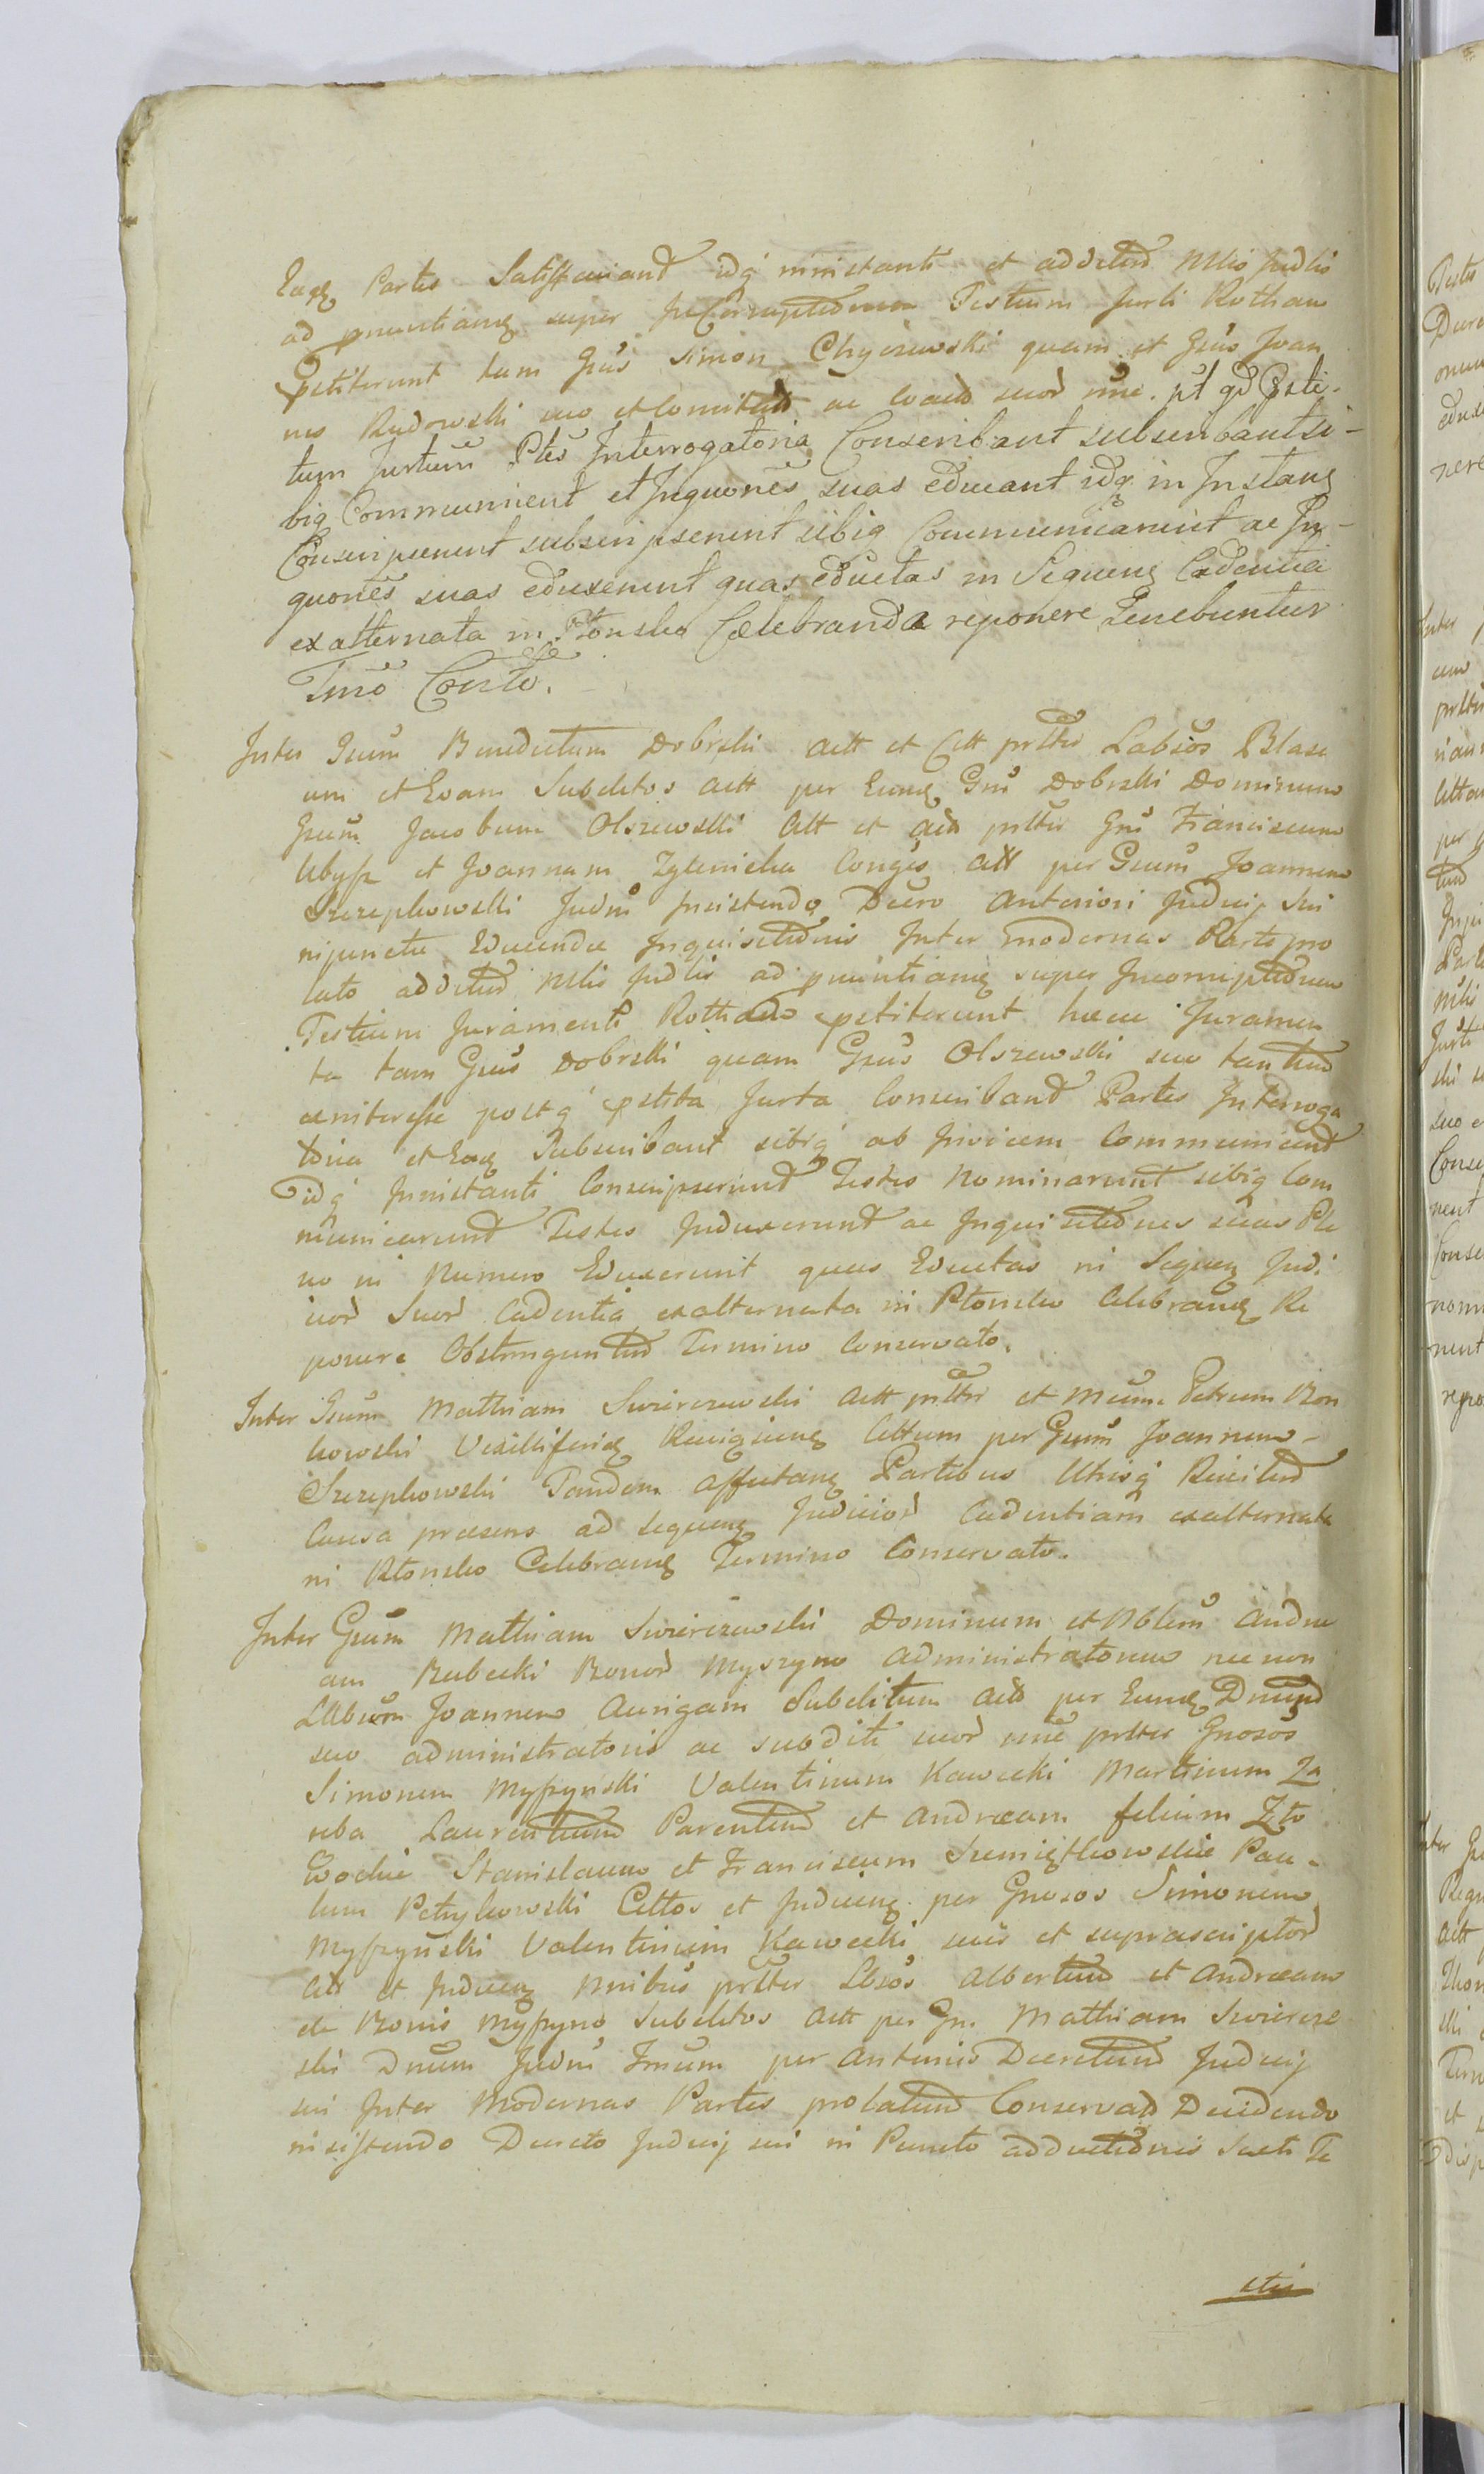 Eaeq Partes Satisfaciant idq instanti et additur Mtis Judlis
ad pnuntianq super Incorruptionem Testium Jurti Rotham
petiterunt tam Gsus Simon Chyczewski quam et Gsus Joan
nes Rudowski suo et Comitatt ac Coactt suor nne. pt qd Psti-
tum Jurtum Ptes Interrogatoria Conscribant subscribant si-
biq Communicent et Inquones suas educant idq in Instanq
Conscripserunt subscripserunt sibiq Communicarunt ac In-
quones suas eduxerunt quas eductas in Sequenq Cadentia
exalternata in Płonsko Celebranda reponere Tenebuntur
Tmno Conto.
Inter Gsum Benedictum Dobrski Actt et Citt prlter Labsos Blasi
um et Evam Subditos Actt per Eunq Gnu Dobrski Dominum
Gsum Jacobum Olszewski Citt et Actt prltes Gnu Franciscum
Ubysz et Joannam Zglenicka Conges Actt per Gsum Joannem
Szczepkowski Judm Insistendo Decro Anteriori Judicij sui
in puncto Educendae Inquisitionis Inter modernas Partes pro
lato additur Mtis Judlis ad pnuntianq super Incorruptionem
Testium Juramenti Rotham petiterunt haecce Juramen
ta tam Gsus Dobrski quam Gsus Olszewski suo tantum
ac interesse postq pstita Jurta Conscribant Partes Interroga
toria et Eaq Subscribant sibiq ab Invicem Communicent
idq Instanti Conscripserunt Testes Nominarunt sibiq Com
municarunt Testes Induxerunt ac Inquisitiones suas Ple
no in Numero Eduxerunt quas Eductas in Sequenq Judi
cior Suor Cadentia exalternata in Płonsko Celebranq Re
ponere Obstringuntur Termino Conservato.
Inter Gsum Mathiam Swierczewski Actt prlter et Mcum Petrum Bon
kowski Vexilliferiq Raciązienq Cittum per Gsum Joannem
Szczepkowski Tandem Affectanq Partibus Utrisq Reicitur
Causa praesens ad sequenq Judicior Cadentiam exalternata
in Płonsko Celebranq Termino Conservato.
Inter Gsum Mathiam Swierczewski Dominum et Nblem Andre
am Rubecki Bonor Myszyno Administratorem nec non
LAbosum Joannem Aurigam Subditum Actt per Eunq Dnum
suo administratoris ac subditi suor nne prltes Gnosos
Simonem Myszynski Valentinum Kawecki Martinum Za
reba Laurentium Parentem et Andream filium Zło
Stanislaum et Franciscum Szemiętkowskie Pau-
lum Petrykowski Cittos et Inducenq per Gnosos Simonem
Myszyński Valentinum Kawecki suis et suprascriptor
Citt et Inducenq nnibus prltes Lbsos Albertum et Andream
de Bonis Myszyno Subditos Actt per Gn. Mathiam Swiercze
ski Dnum Judm Tmum per Anterius Decretum Judicij
sui Inter Modernas Partes prolatum Conservatt Decidendo
insistendo Decreto Judicij sui in Puncto adductionis Sueti Te
stis